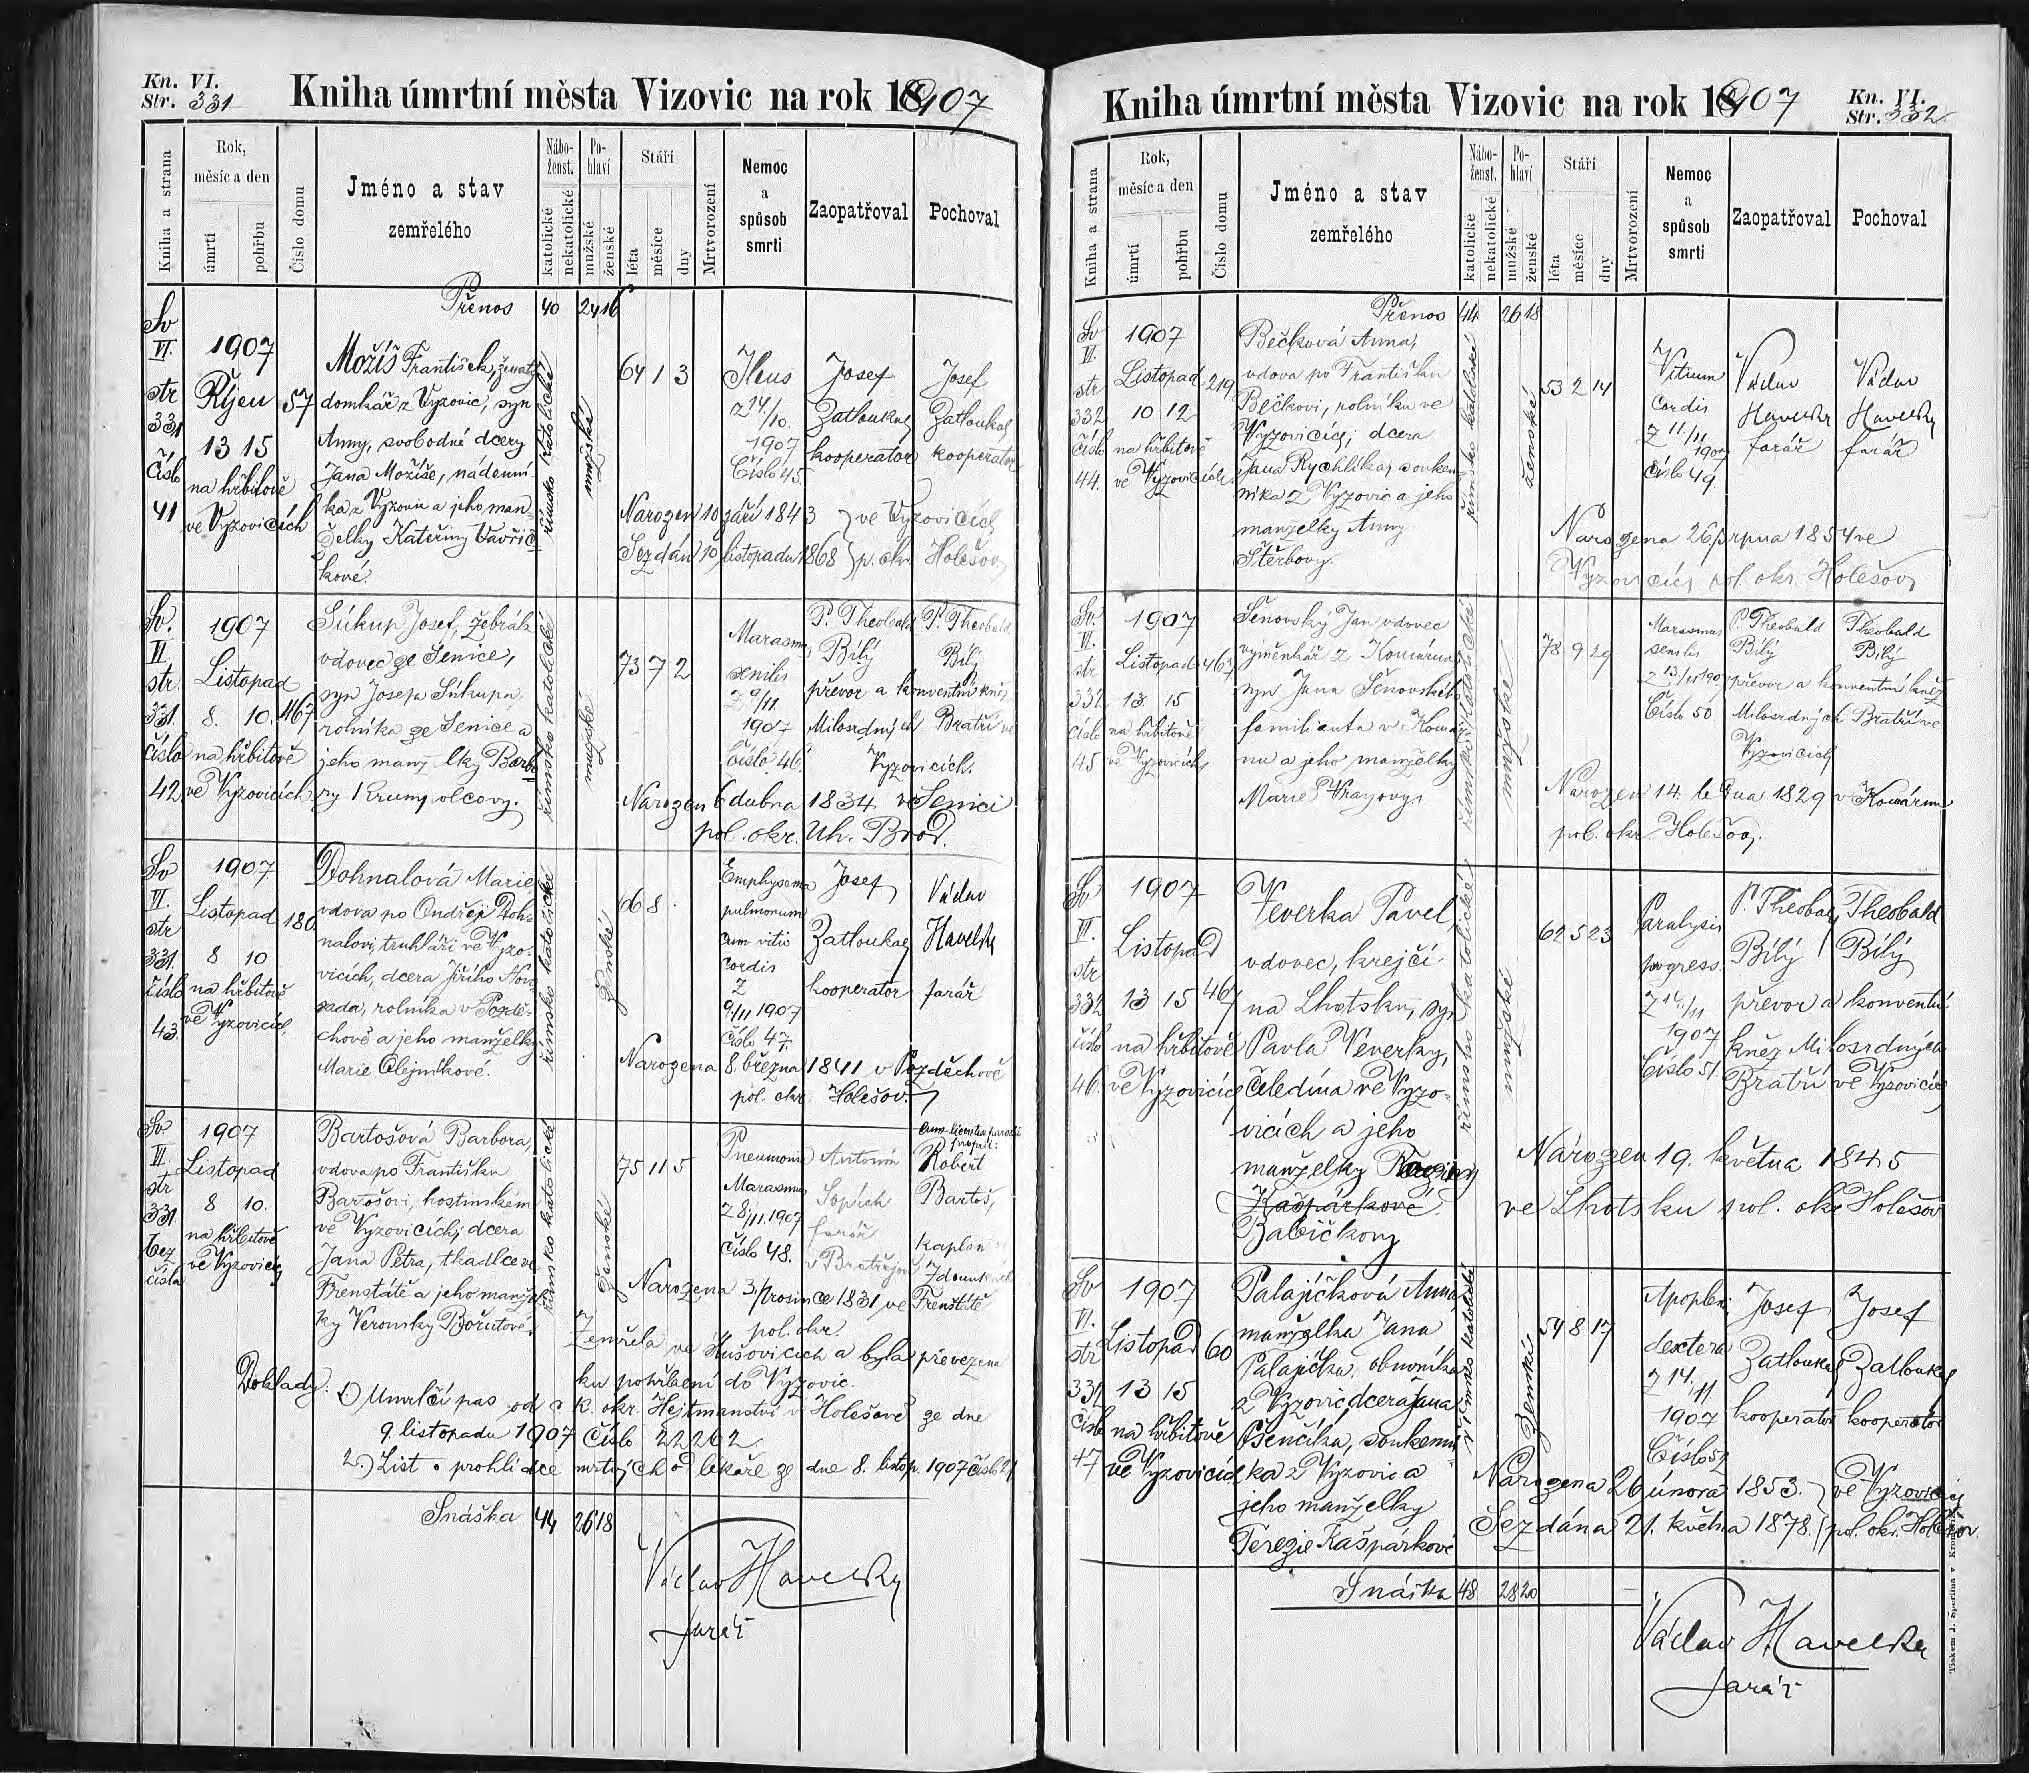 Kn. VI.
Str. 331
Kniha úmrtní města Vizovic na rok 1907
Kniha a strana
Rok, měsíc a den
úmrtí
pohřbu
Číslo domu
Jméno a stav
zemřelého
Nábo-
ženst.
katolické
nekatolické
Po-
hlaví
mužské
ženské
Stáří
léta
měsíce
dny
Mrtvorození
Nemoc
a
spůsob
smrti
Zaopatřoval
Pochoval
Přenos 40 24 16
Sv
VI.
str
331
číslo
41
1907
Říjen
13 15
na hřbitově
ve Vyzovicích
57
Možíš František, ženatý
domkář z Vyzovic, syn
Anny, svobodné dcery
Jana Možíše, nádenní-
ka z Vyzovic a jeho man-
želky Kateřiny Vavřič-
kové.
římsko katolické
mužské
64 1 3
Ileus
z 14/10.
1907
Číslo 45.
Josef
Zatloukal
kooperator
Josef
Zatloukal
kooperator
Narozen 10 září 1843 } ve Vyzovicích
Sezdán 10 listopadu 1868 } p. okr. Holešov
Sv.
VI.
str.
331.
číslo
42
1907
Listopad
8. 10.
na hřbitově
ve Vyzovicích
467
Súkup Josef, žebrák
vdovec ze Senice,
syn Josefa Súkupa,
rolníka ze Senice a
jeho manželky Barbo-
ry Krumpolcovy.
římsko katolické
mužské
73 7 2
Marasmus
senilis
z 9/11.
1907
číslo 46.
P. Theobald
Bílý
převor a konventní kněz
Milosrdných Bratří ve
Vyzovicích.
P. Theobald
Bílý
Narozen 6 dubna 1834 v Senici
pol. okr. Uh. Brod.
Sv
VI.
str
331.
číslo
43.
1907
Listopad
8 10
na hřbitově
ve Vyzovicích.
180
Dohnalová Marie,
vdova po Ondřeji Doh-
nalovi, truhláři ve Vyzo-
vicích, dcera Jiřího Novo-
sada, rolníka v Pozdě-
chově a jeho manželky
Marie Olejníkové.
římsko katolické
ženské
66 8
Emphysema
pulmonum
cum vitio
cordis
z
9/11 1907
číslo 47.
Josef
Zatloukal
kooperator
Václav
Havelka
farář
Narozena 8. března 1841 v Pozděchově
pol. okr. Holešov.
Sv.
VI.
str
331
bez
čísla
1907
Listopad
8 10.
na hřbitově
ve Vyzovicích
Bartošová Barbora,
vdova po Františku
Bartošovi, hostinském
ve Vyzovicích, dcera
Jana Petra, tkadlce ve
Frenštátě a jeho manžel-
ky Veroniky Bořutové.
římsko katolické
ženské
75 11 5
Pneumonie
Marasmus
z 8/11.1907
číslo 48.
Antonín
farář
cum licentia parochi
proprii:
Robert
Bartoš,
kaplan
Narozena 3. prosince 1831 ve Frenštátě
pol. okr.
Zemřela ve Hušovicích a byla převezena
ku pohřbení do Vyzovic.
Doklady: 1) Úmrlčí pas od c. k. okr. Hejtmanství v Holešově ze dne
9. listopadu 1907 číslo 22262
2.) List o prohlídce mrtvých od lékaře ze dne 8. listop. 1907 číslo
Snáška 44 26 18
Václav Havelka
farář
Kniha úmrtní města Vizovic na rok 1907
Kn. VI.
Str. 332
Kniha a strana
Rok,
měsíc a den
úmrtí
pohřbu
Číslo domu
Jméno a stav
zemřelého
Nábo-
ženst.
katolické
nekatolické
Po-
hlaví
mužské
ženské
Stáří
léta
měsíce
dny
Mrtvorození
Nemoc
a
spůsob
smrti
Zaopatřoval
Pochoval
Přenos 44 26 18
Sv
VI.
str
332
číslo
44.
1907
Listopad
10 12
na hřbitově
ve Vyzovicích
219
Bečková Anna,
vdova po Františku
Bečkovi, rolníku ve
Vyzovicích, dcera
Jana Rychlíka, souken-
níka z Vyzovic a jeho
manželky Anny
Štěrbovy.
římsko katolické
ženské
53 2 14
Vitium
cordis
z 11/11
1907
číslo 49
Václav
Havelka
farář
Václav
Havelka
farář
Narozena 26 srpna 1854 ve
Vyzovicích pol. okr. Holešov
Sv.
VI.
str
332
číslo
45
1907
Listopad
13. 15
na hřbitově
ve Vyzovicích
467
Šenovský Jan vdovec
výměnkář z Komárna
syn Jana Šenovského
familianta v Komár-
nu a jeho manželky
Marie Vrajovy.
římsko katolické
mužské
78 9 29
Marasmus
senilis
z 13/11 1907
Číslo 50
P. Theobald
Bílý
převor a konventní kněz
Milosrdných Bratří ve
Vyzovicích
Theobald
Bílý
Narozen 14. ledna 1829 v Komárně
pol. okr. Holešov.
Sv
VI.
str
332
číslo
46.
1907
Listopad
13 15
na hřbitově
ve Vyzovicích
467
Veverka Pavel,
vdovec, krejčí
na Lhotsku, syn
Pavla Veverky,
čeledína ve Vyzo-
vicích a jeho
manželky
Kašpárkové.
Babíčkovy
římsko katolické
mužské
62 5 23
Paralysis
progress.
z 14./11
1907
Číslo 51.
P. Theobald
Bílý
převor a konventní
kněz Milosrdných
Bratří ve Vyzovicích
Theobald
Bílý
Narozen 19. května 1845
ve Lhotsku pol. okr Holešov
Sv
VI.
str
332
číslo
47
1907
Listopad
13 15
na hřbitově
ve Vyzovicích
60
Palajíčková Anna
manželka Jana
Palajíčka, obuvníka
z Vyzovic dcera Jana
Pšenčíka, soukenní-
ka z Vyzovic a
jeho manželky
Terezie Kašpárkové
římsko katolické
ženské
54 8 17
Apoplexi
dextera
z 14./11
1907
Číslo 52
Josef
Zatloukal
kooperator
Josef
Zatloukal
kooperator
Narozena 26 února 1853. } ve Vyzovicích
Sezdána 21. května 1878. } pol. okr. Holešov.
Snáška 48 28 20
Václav Havelka
farář